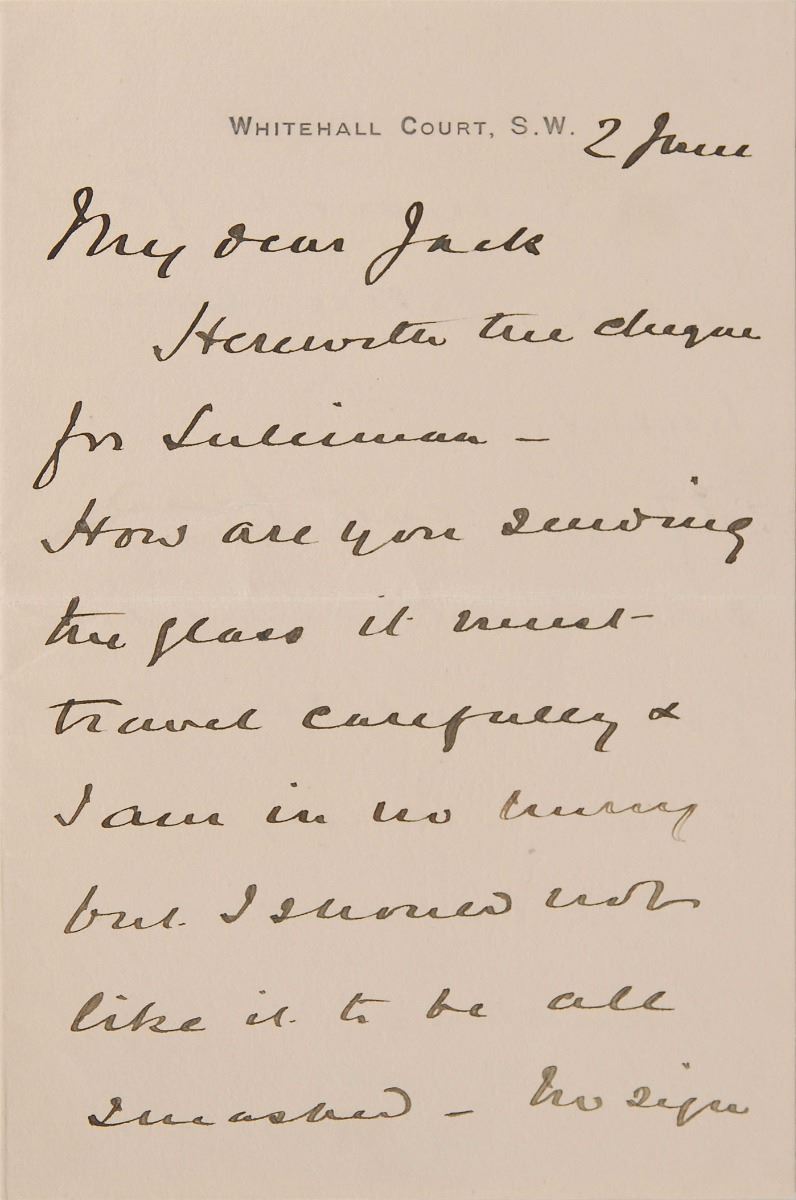 WHITEHALL COURT, S.W. 2 June
My dear Jack
Herewith the cheque
for Suleiman –
How are you sending
the glass it must
travel carefully &
I am in no hurry
but I should not
like it to be all
smashed – No sign